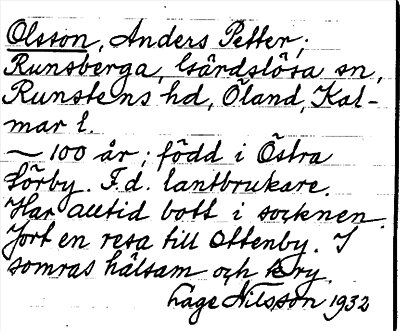 Olsson, Anders Petter;
Runsberga, Gärdslösa sn,
Runstens hd, Öland, Kal-
mar l.
— 100 år; född i Östra
Sörby. F.d. lantbrukare.
Har alltid bott i socknen.
Gort en resa till Ottenby. I
somras hälsam och kry.
Låge Nilsson 1932